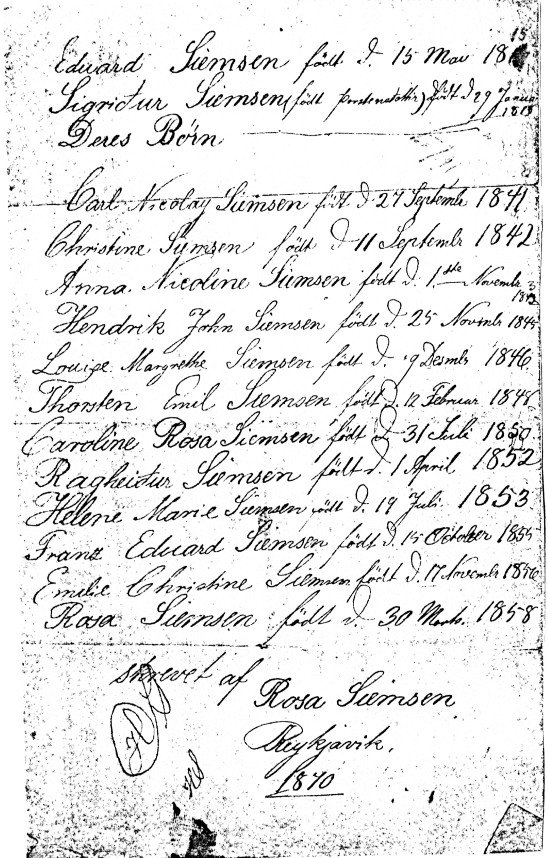 Eduard Siemsen født d. 15 Mai 1815
Sigriður Siemsen (født Þorsteinsdottir) født d 29 Januar 1818
Deres Børn
Carl Nicolay Siemsen født d 27 Septembr 1841
Christine Siemsen født d 11 Septembr 1842
Anna Nicoline Siemsen født d. 1ste Novembr
Hendrik John Siemsen født d. 25 Novmbr 1845
Louise Margrethe Siemsen født d. 9 Desmbr 1846
Thorsten Emil Siemsen født d. 12 Februar 1848
Caroline Rosa Siemsen født d 31 Juli 1850
Ragheiður Siemsen født d. 1 April 1852
Helene Marie Siemsen født d. 19 Juli 1853
Franz Eduard Siemsen født d. 15 October 1855
Emilie Christine Siemsen født d. 17 Novembr 1856
Rosa Siemsen født d. 30 Marts. 1858
skrevet af
Rosa Siemsen
Reykjavik.
1870